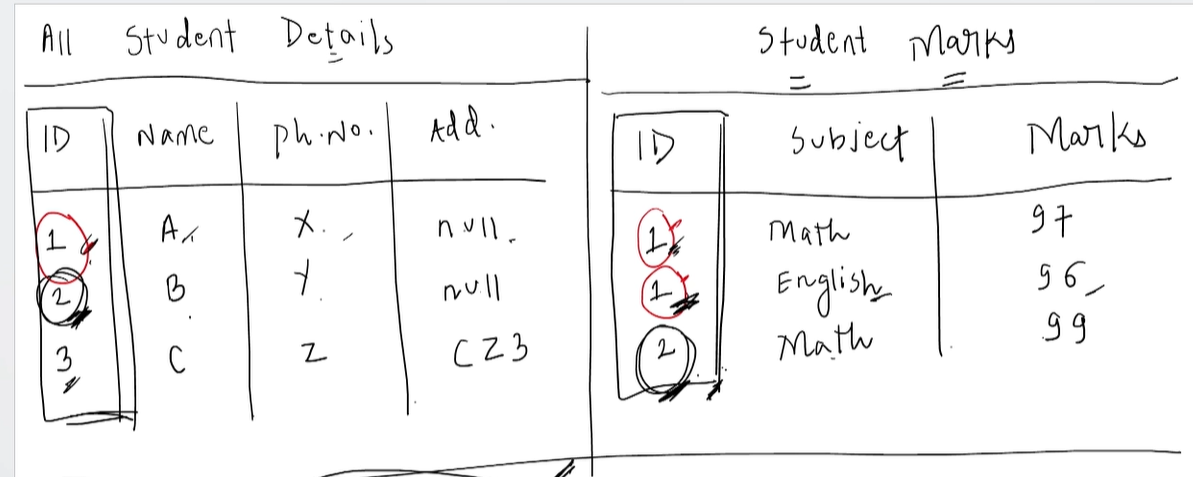 All Student Details
ID Name Ph.No. Add.
1 A X. null.
2 B Y. null
3 C Z CZ3
Student Marks
ID Subject Marks
1 Math 97
1 English 96
2 Math 99